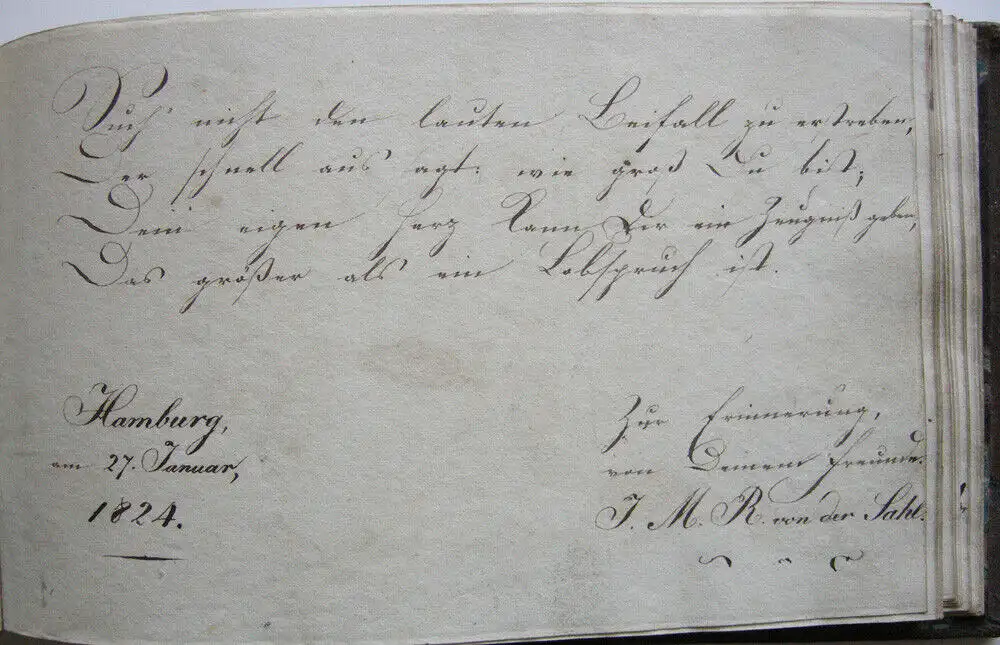 Such' nicht den lauten Beifall zu erstreben,
Der schnell aus sagt: wie groß Du bist;
Dein eigen Herz kann Dir ein Zeugniß geben,
Das größer als ein Lobspruch ist.
Hamburg,
am 27. Januar,
1824.
Zur Erinnerung,
von Deinem Freunde.
J. M. R. von der Sahl.